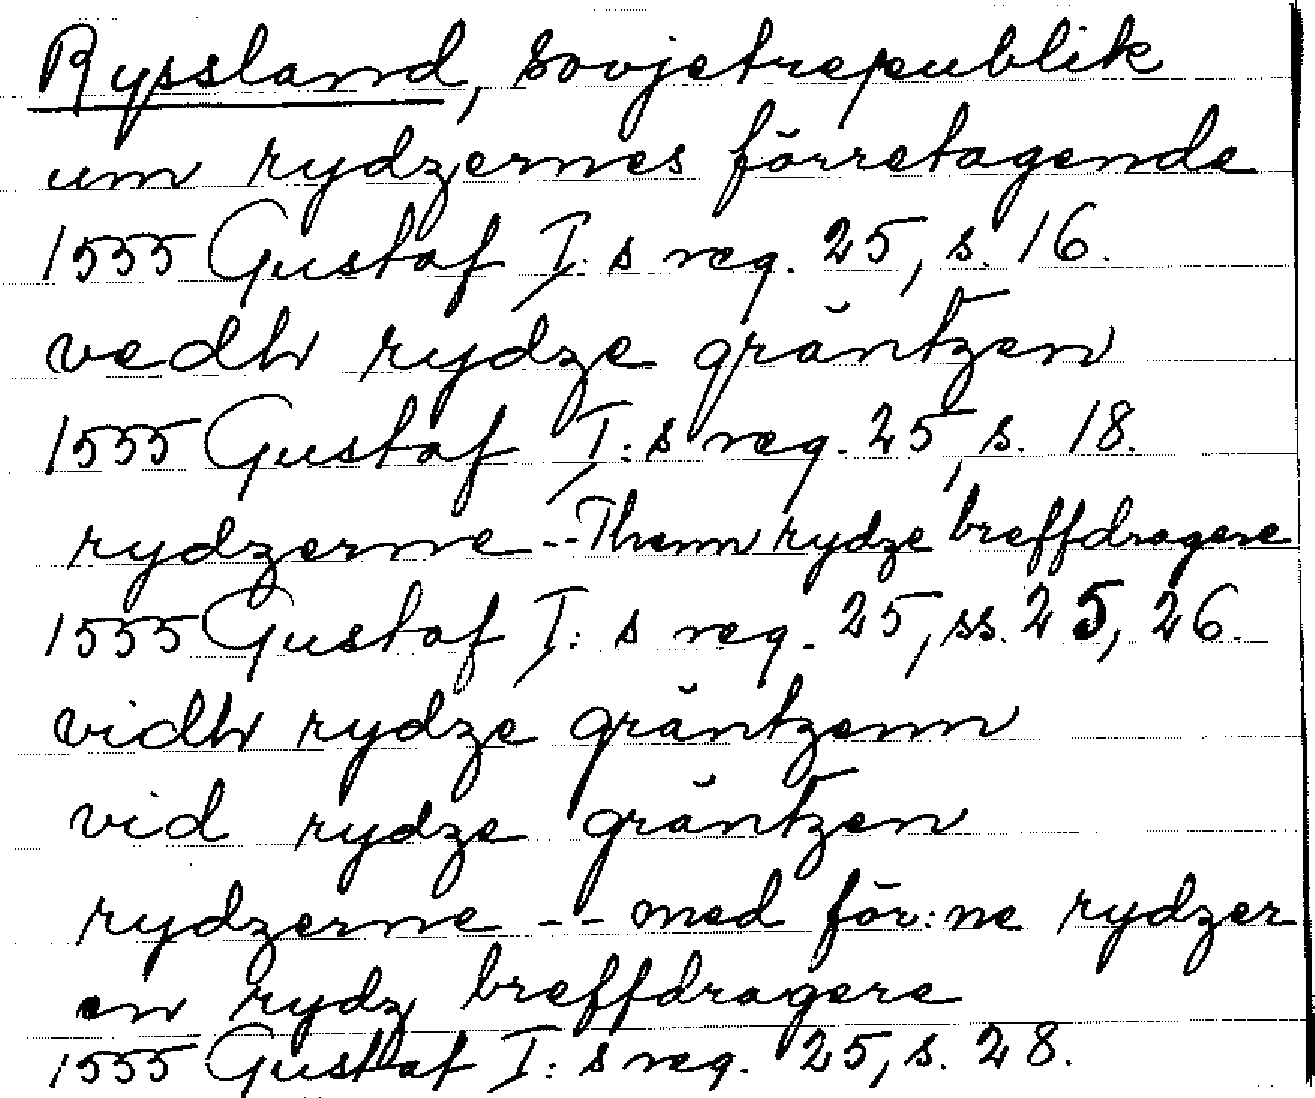 Ryssland, Sovjetrepublik
um rydzernes förretagende
1555 Gustaf I: s reg. 25, s. 16.
vedh rydze gräntzen
1555 Gustaf I: s reg. 25, s. 18.
rydzerne -- Thenn rydze breffdragere
1555 Gustaf I: s reg. 25, ss. 25, 26.
vidh rydze gräntzenn
vid rydze gräntzen
rydzerne -- med för:ne rydzer
en rydz breffdragere
1555 Gustaf I: s reg. 25, s. 28.